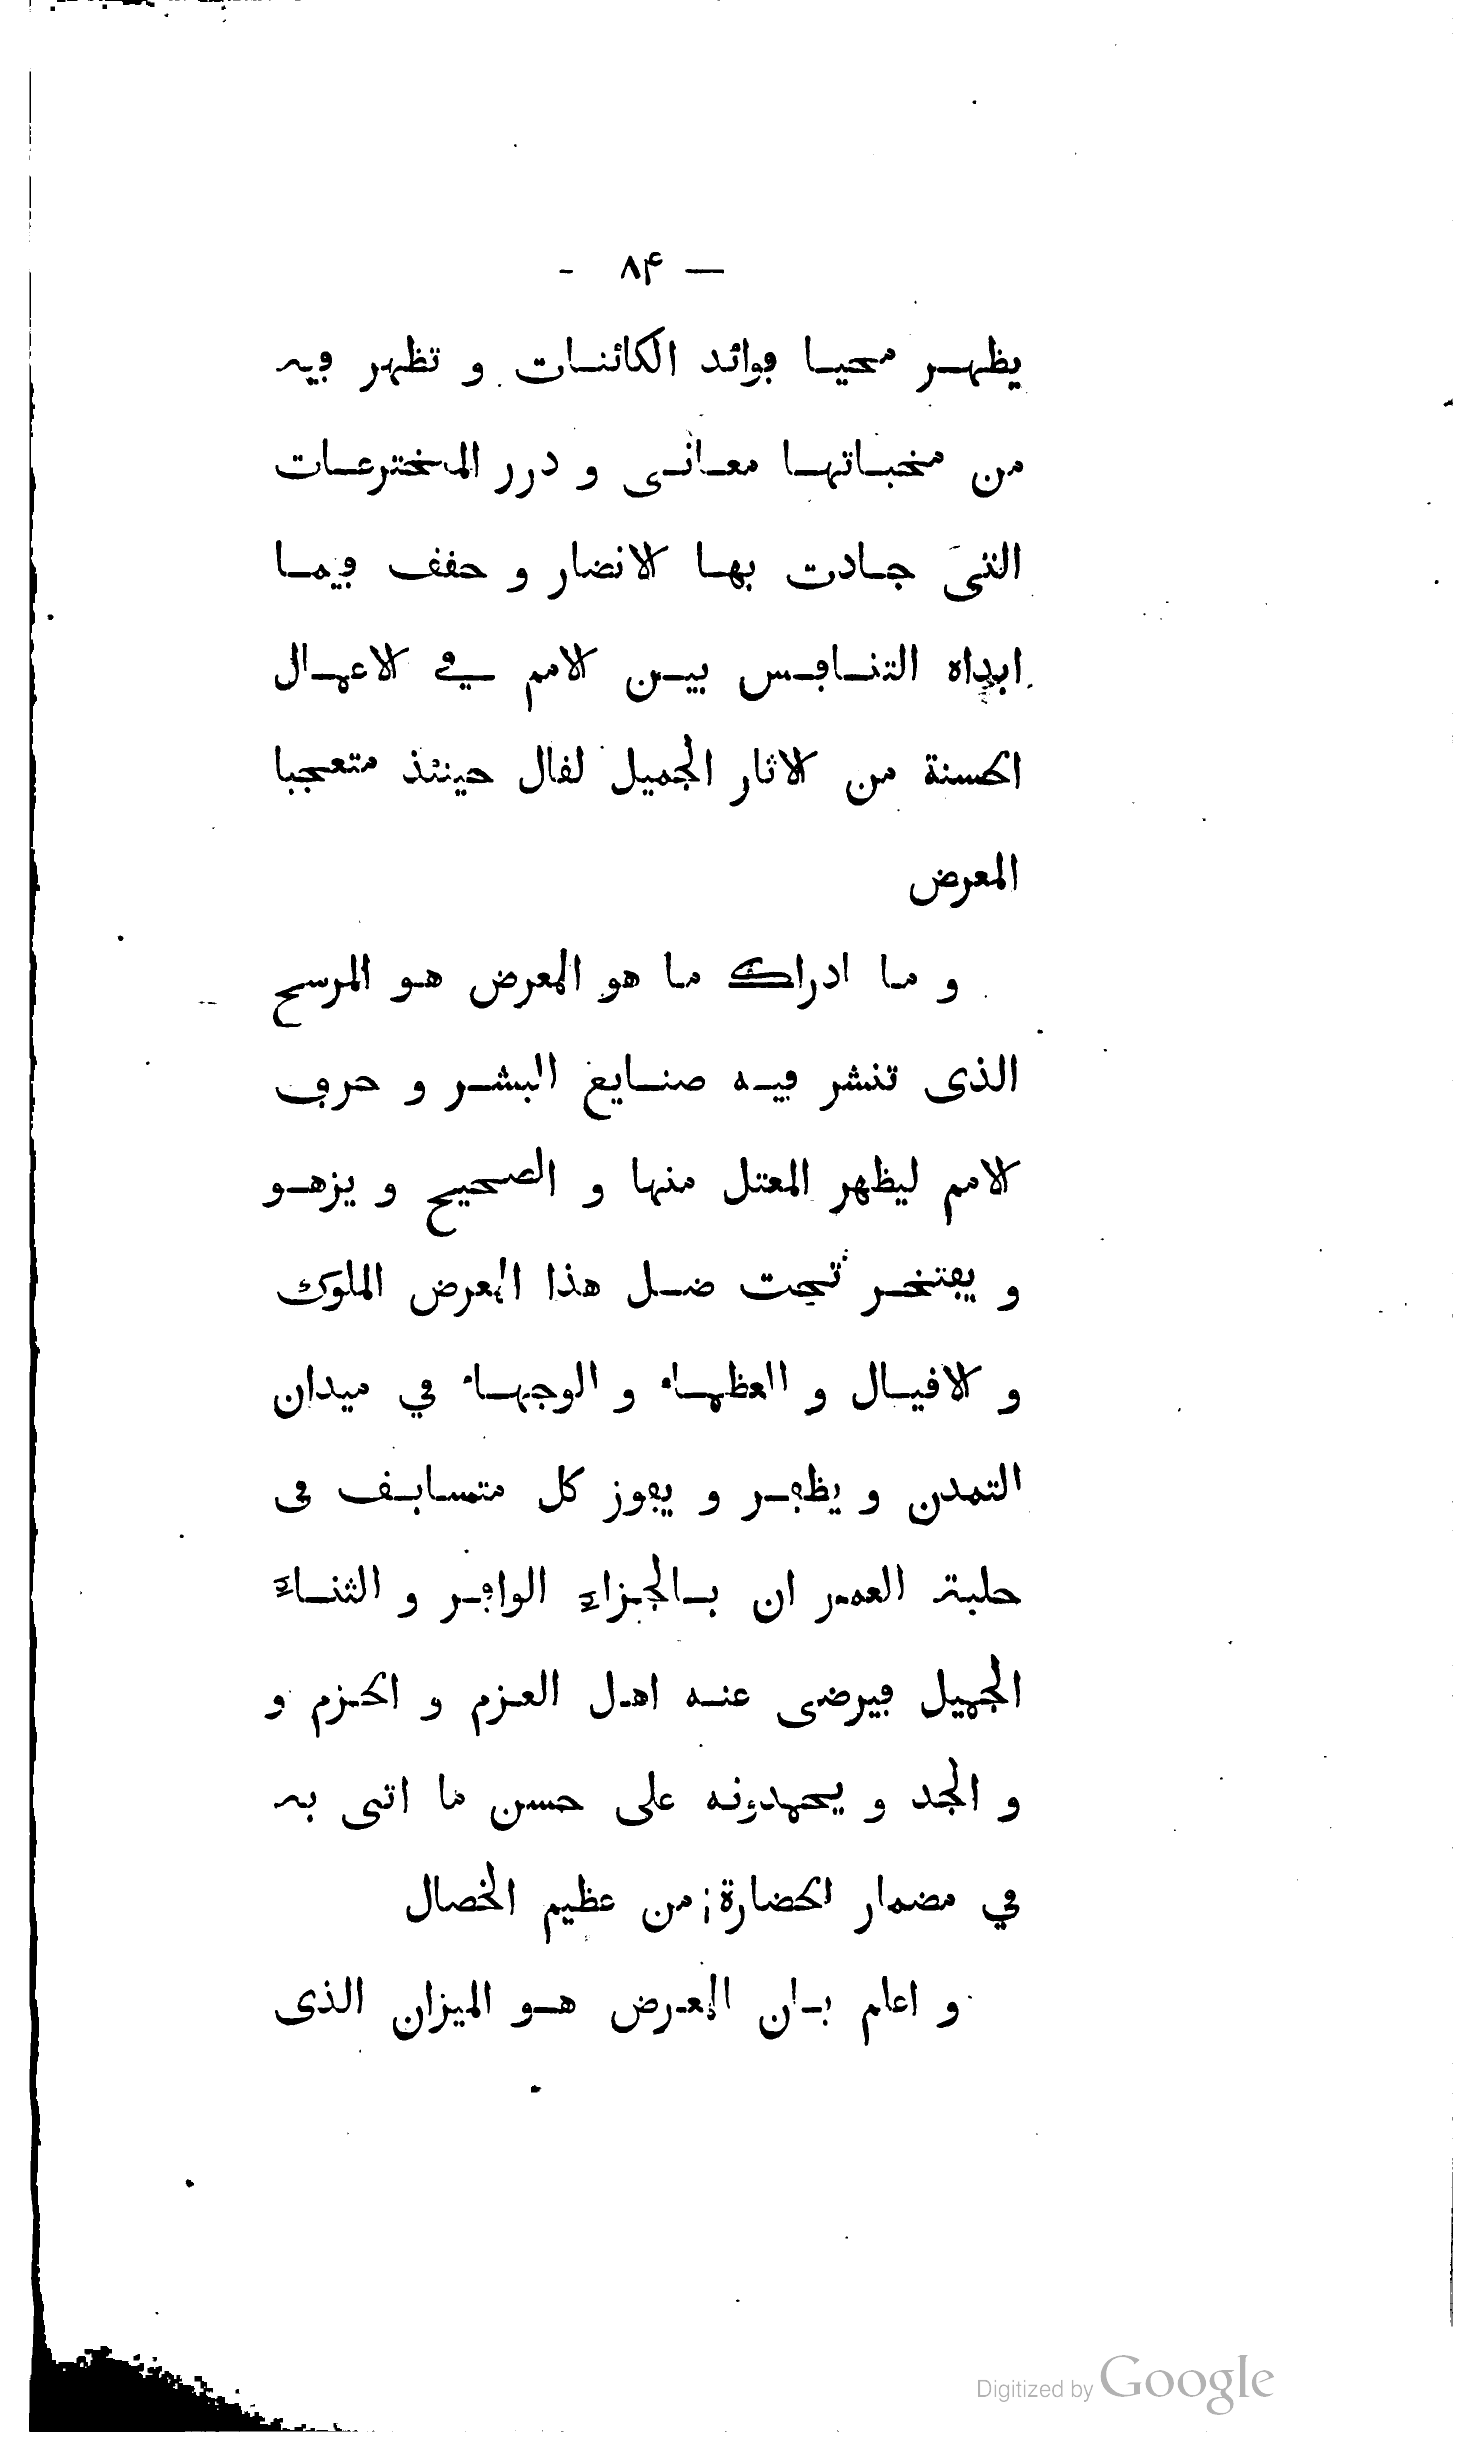 — ٨۴ -
يظهر محيا فوائد الكائنات و تظهر فيه
من مخباتها معانى و درر المخترعات
التى جادت بها الانضار و حقق فيما
ابداه التنافس بين الامم في الاعمال
الحسنة من الاثار الجميل لقال حينئذ متعجبا
المعرض
و ما ادراك ما هو المعرض هو المرسح
الذى تنشر فيه صنايع البشر و حرف
الامم ليظهر المعتل منها و الصحيح و يزهو
و يفتخر تحت ضل هذا المعرض الملوك
و الاقيال و العظماء و الوجهاء في ميدان
التمدن و يظفر و يفوز كل متسابق فى
حلبة العمران بالجزاء الوافر و الثناء
الجميل فيرضى عنه اهل العزم و الحزم و
و الجد و يحمدونه على حسن ما اتى به
في مضمار الحضارة من عظيم الخصال
و اعلم بان المعرض هو الميزان الذى
Digitized by Google